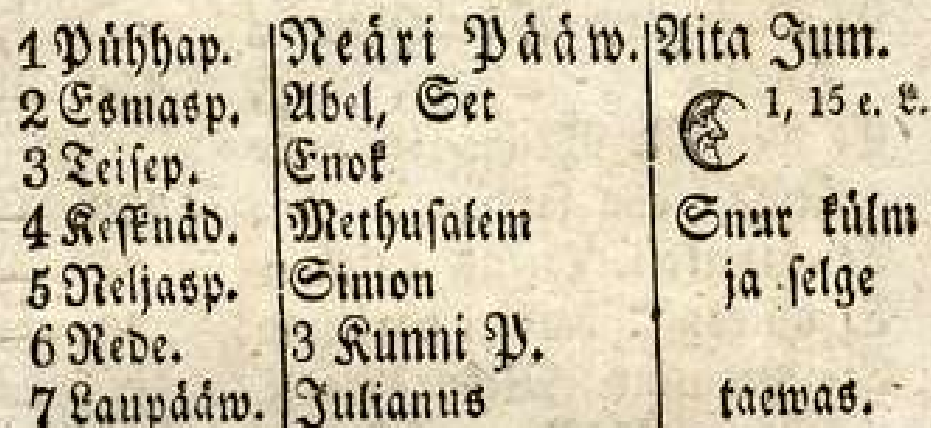 1 Pühhap. Neäri Pääw. Aita Jum.
2 Esmasp. Abel, Set 1, 15 e. L.
3 Teisep. Enok
4 Kesknäd. Methusalem Suur külm
5 Neljasp. Simon ja selge
6 Rede. 3 Kunni P.
7 Laupääw. Julianus taewas.